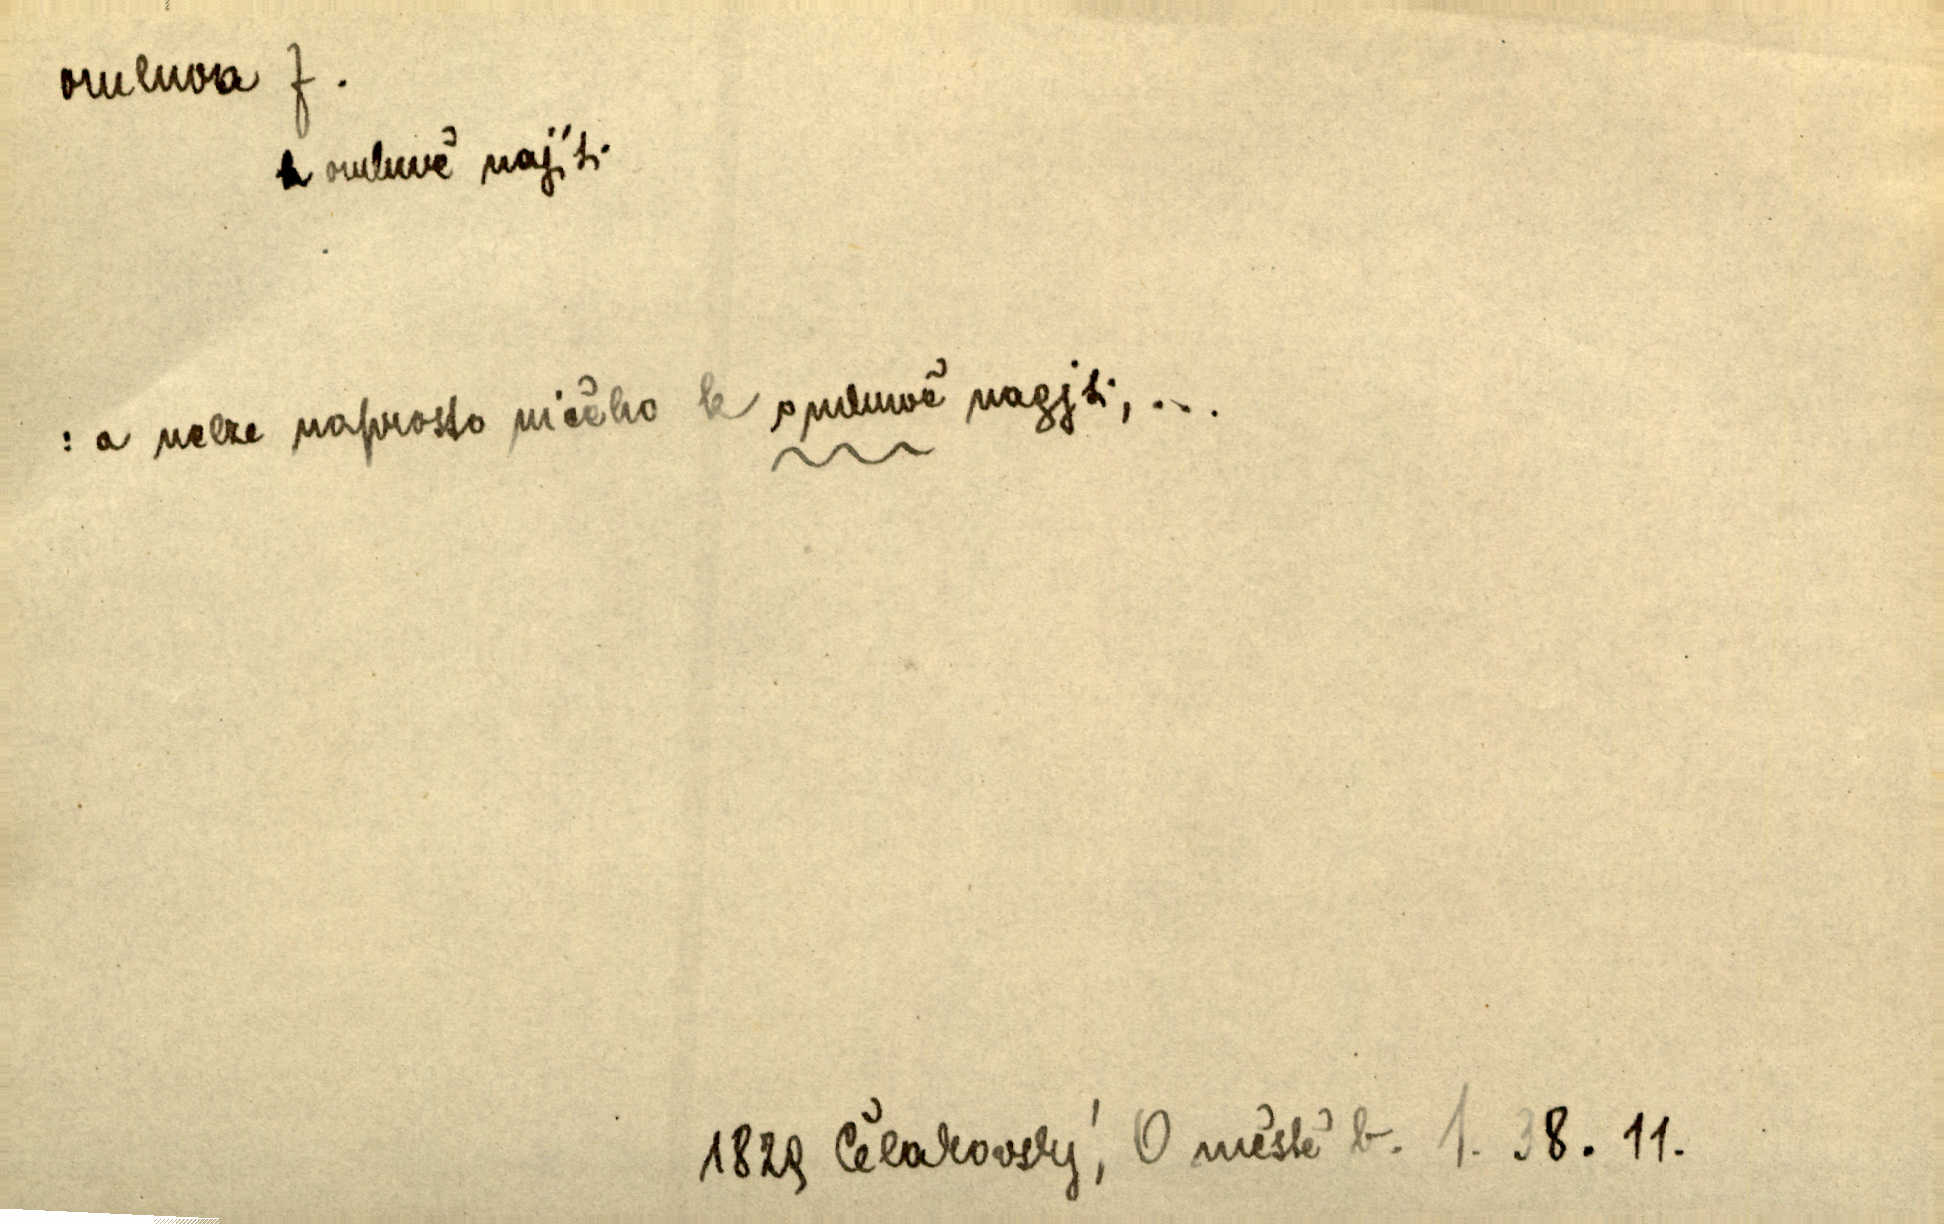 omluva f.
k omluvě najíti
: a nelze naprosto ničého k omluwě nagjti, ...
1829 Čelakovský, O městě b. 1. 38. 11.